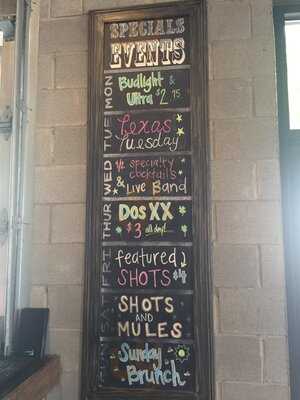 SPECIALS
EVENTS
MON
Budlight &
Ultra $2.75
TUE
Texas
Tuesday
WED
1/2 specialty
cocktails
& Live Band
THUR
DOS XX
$3 all day!...
FRI
featured
SHOTS $4
SAT
SHOTS
AND
MULES
Sunday
Brunch